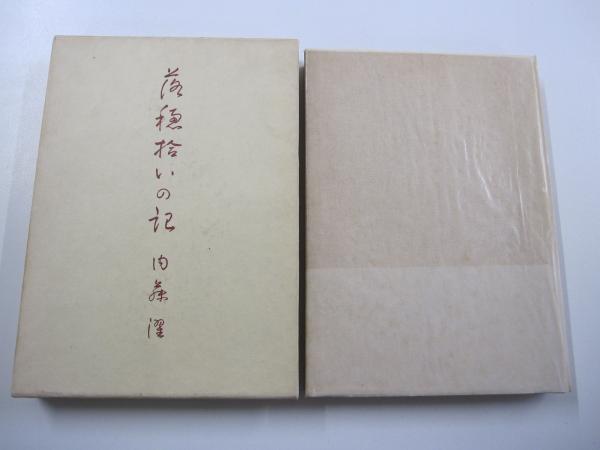 落穂拾いの記 内藤濯